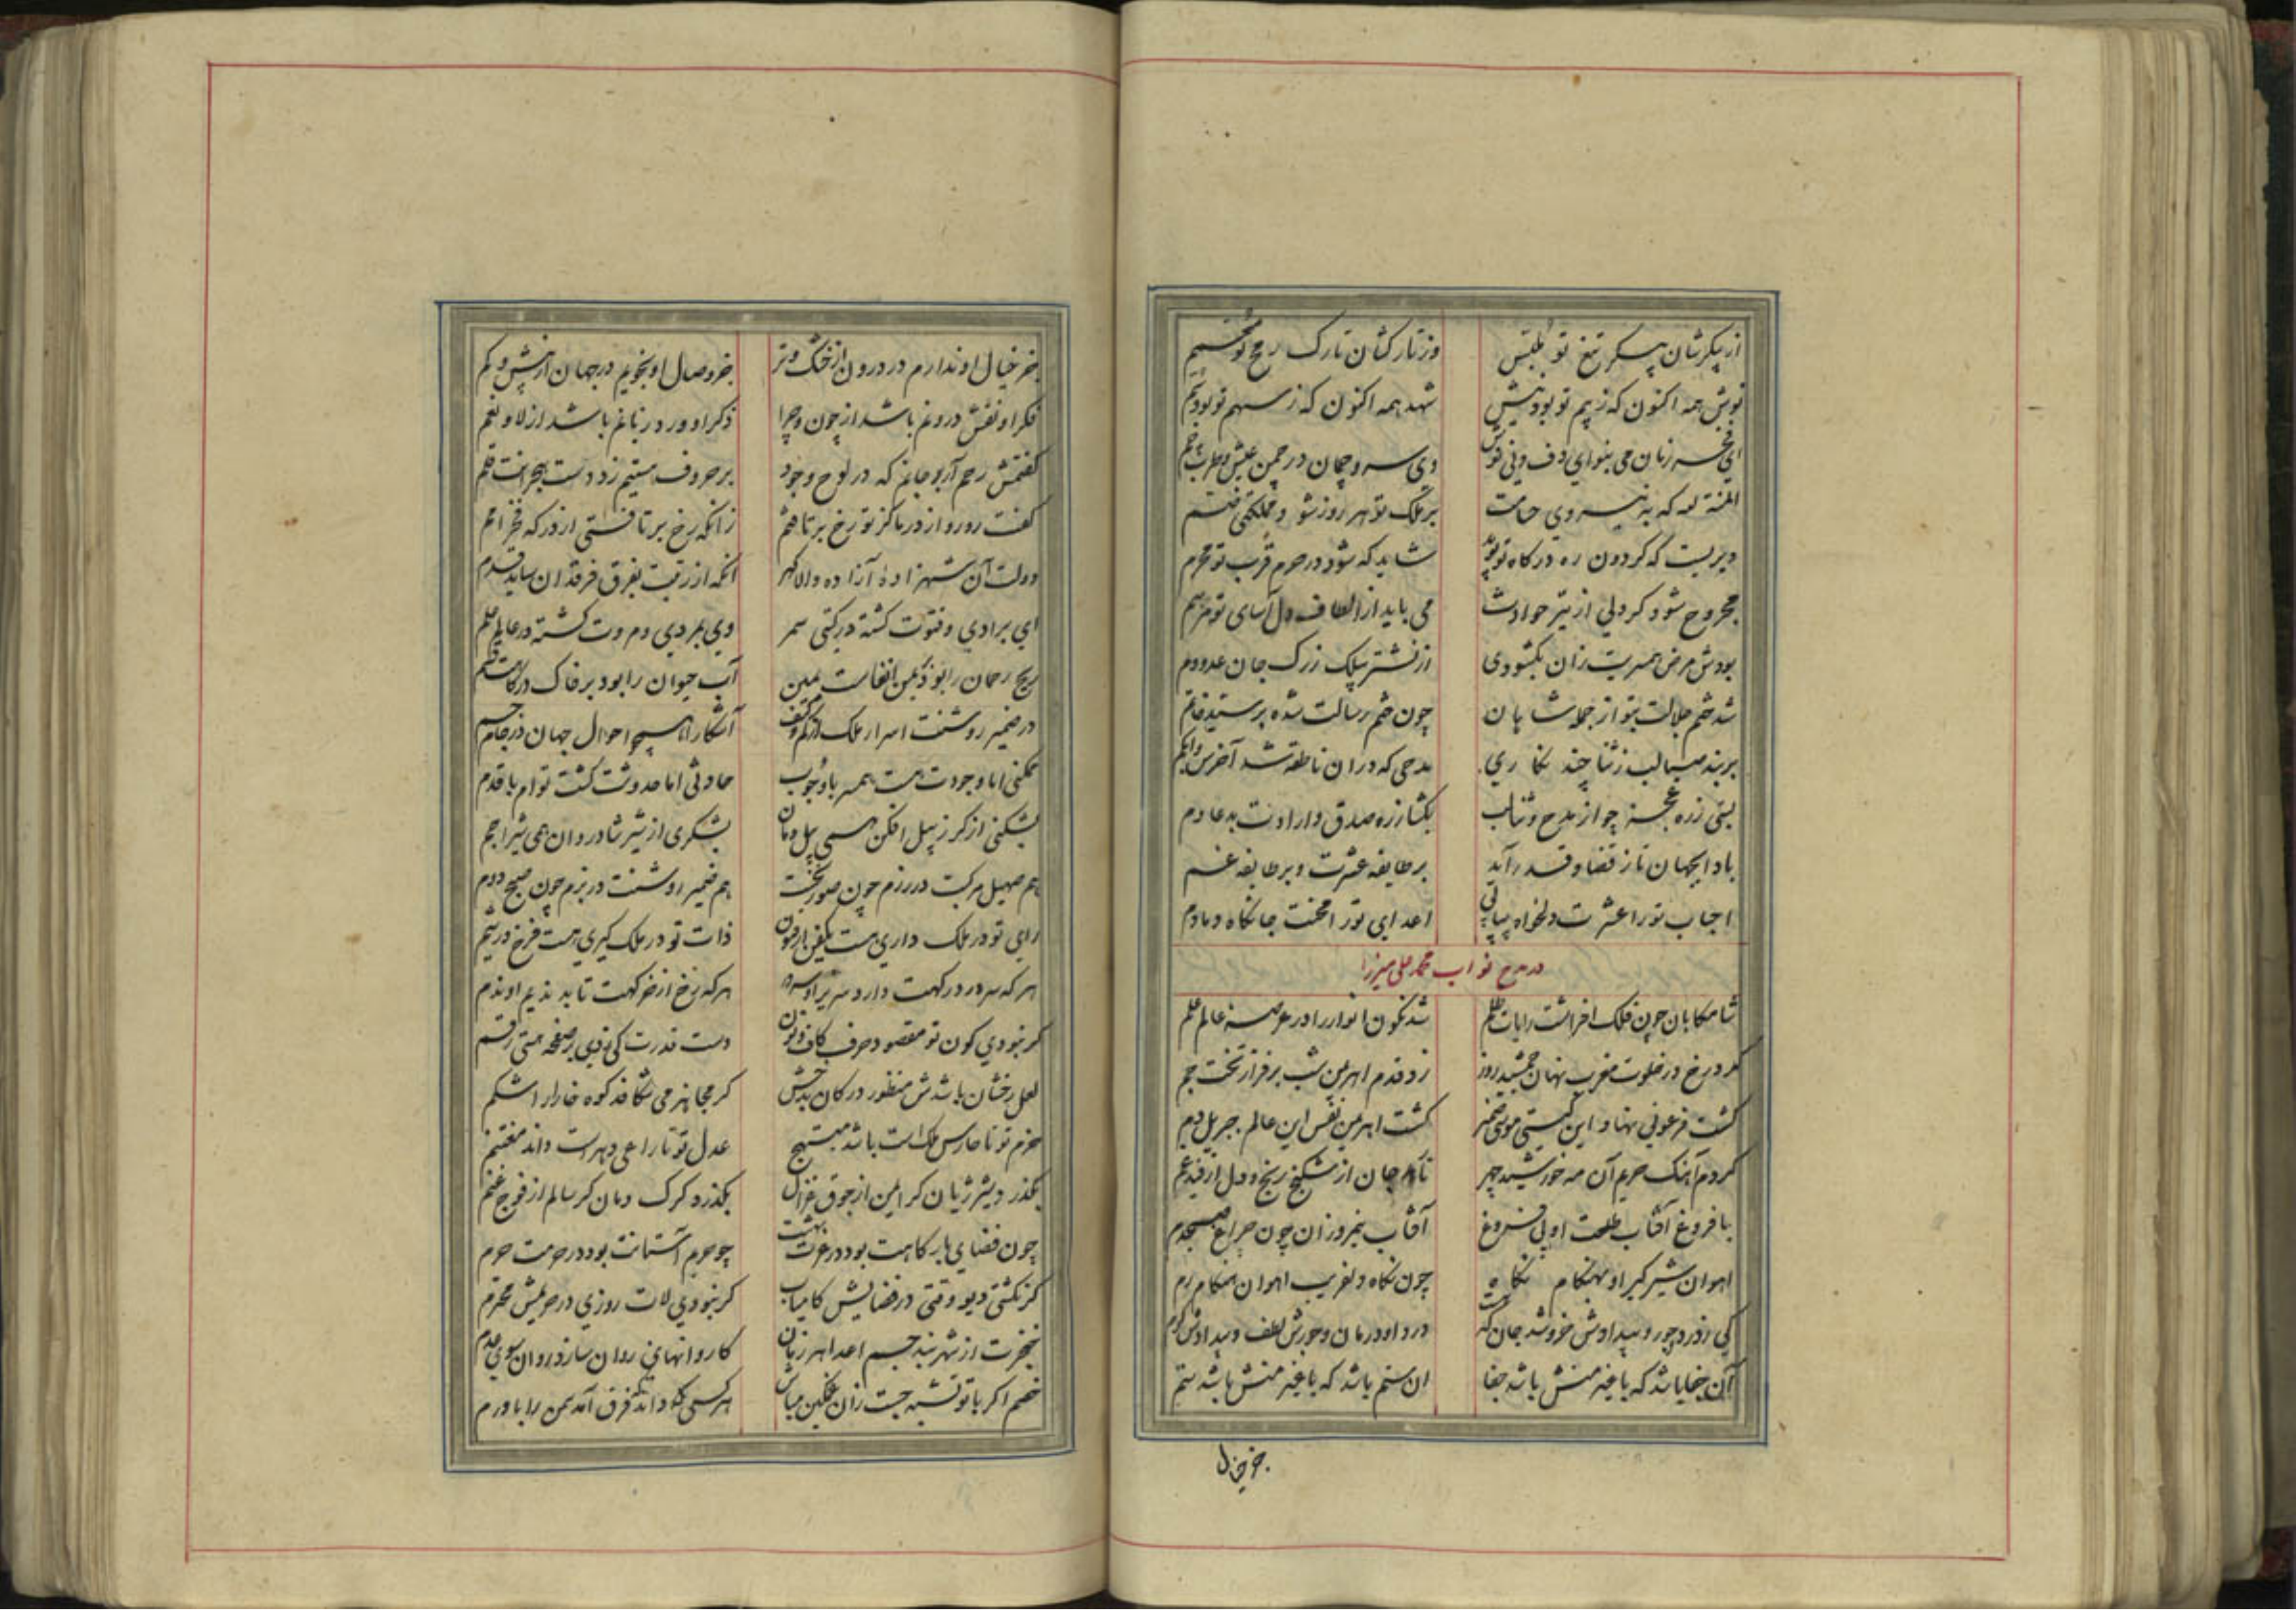 از پیکرشان پیکر تیغ تو ملبس
وز تارکشان تارک رمح تو
نوش همه اکنون که ز بیم تو بود نیش
شهد همه اکنون که ز سهم تو بود سم
ای زنان می بنوای دف و نی نوش
وی سرو چمان در چمن عیش و طرب چم
المنة لله که به نیروی حسامت
بر ملک تو هر روز شود مملکتی ضم
دیریست که گردون ره درگاه تو پوید
شاید که شود در حرم قرب تو محرم
مجروح شود گر دلی از تیر حوادث
می باید از الطاف دل آسای تو مرهم
بودش مرض همسریت زان بگشودی
از نشتر بیلک ز رگ جان عدو دم
شد ختم جلالت بتو از جمله شاهان
چون ختم رسالت شده بر سید خاتم
بربند لب ز ثنا چند نگاری
مدحی که در آن ناطقه شد اخرس و ابکم
بستی زره عجز چو از مدح و ثنا لب
بگشا ز ره صدق و ارادت بدعا دم
باد ایجهان تا ز قضا و قدر آید
بر طایفه عشرت و بر طایفه غم
احباب تو را عشرت دلخواه پیاپی
اعدای تو را محنت جانکاه دمادم
در مدح نواب محمد علی میرزا
شامگاهان چون فلک افراشت رایات ظلم
شد نگون انوار را در عرصه عالم علم
کرد رخ در خلوت مغرب نهان جمشید روز
زد قدم اهرمن شب بر فراز تخت جم
گشت فرعونی نهاد این گیتی موسی ضمیر
گشت اهرمن نفس این عالم جبریل دم
کردم آهنگ حریم آن مه خورشید چهر
تا رهد جان از شکنج رنج و دل از قید غم
با فروغ آفتاب طلعت او بی فروغ
آفتاب نیمروزان چون چراغ صبحدم
آهوان شیرگیر او بهنگام نگاه
چون نگاه دلفریب آهوان هنگام رم
کی ز درد و جور و بیدادش خروشد جان که هست
درد او درمان و جورش لطف و بیدادش کرم
آن جفا باشد که با غیر منش باشد جفا
آن ستم باشد که با غیر منش باشد ستم
جز خیال
جز خیال او ندارم در درون از خشک و تر
جز وصال او نجویم در جهان از بیش و کم
فکر او نقش درونم باشد از چون و چرا
ذکر او ورد زبانم باشد از لا و نعم
گفتمش رحم آر بر جانم که در لوح وجود
بر حروف هستیم زد دست هجرانت قلم
گفت رو رو از در ما کز تو رخ برتافتم
زانکه رخ برتافتی از درگه فخر امم
دولت آن شهزاده آزاده والا گهر
آنکه از رتبت بفرق فرقدان ساید قدم
ای برادی و فتوت گشته در گیتی سمر
وی بمردی و مروت گشته در عالم علم
ریح رحمان را بود ز یمن انفاست یمین
آب حیوان را بود بر خاک درگاهت قسم
در ضمیر روشنت اسرار ملک از کم و کیف
آشکارا همچو احوال جهان در جام جم
ممکنی اما وجودت هست همسر با وجوب
حادثی اما حدوثت گشت توام با قدم
بشکنی از گرز پیل افکن همی پیل دمان
بشکری از تیر شادروان همی شیر اجم
هم صهیل مرکبت در رزم چون صور نخست
هم ضمیر روشنت در بزم چون صبح دوم
رای تو در ملک داری هست
ذات تو در ملک گیری هست فرخ
هر که سر در درگهت دارد
هر که رخ از
گر نبودی کون تو مقصود حرف کاف و نون
دست قدرت کی زدی بر صفحه هستی رقم
لعل رخشان باشدش منظور در کان بدخش
گر مجا هر می شکافد کوه خارا را شکم
حزم تو تا حارس ملک است باشد مبتهج
عدل تو تا راعی دهر است داند مغتنم
بگذرد شیر ژیان گر ایمن از جوق غزال
بگذرد گرگ دمان گر سالم از فوج غنم
چون فضای بارگاهت بود در عزت بهشت
چو حریم آستانت بود در حرمت حرم
گر نگشتی دیو وقتی در فضایش کامیاب
گر نبودی لات روزی در حریمش محترم
خنجرت از شهر بند جسم اعدا هر زمان
کاروانهای روان سازد روان سوی عدم
خصم اگر با تو تشبه جست زان غمگین مباش
هر کسی داند که فرق آمد بهن را با ورم